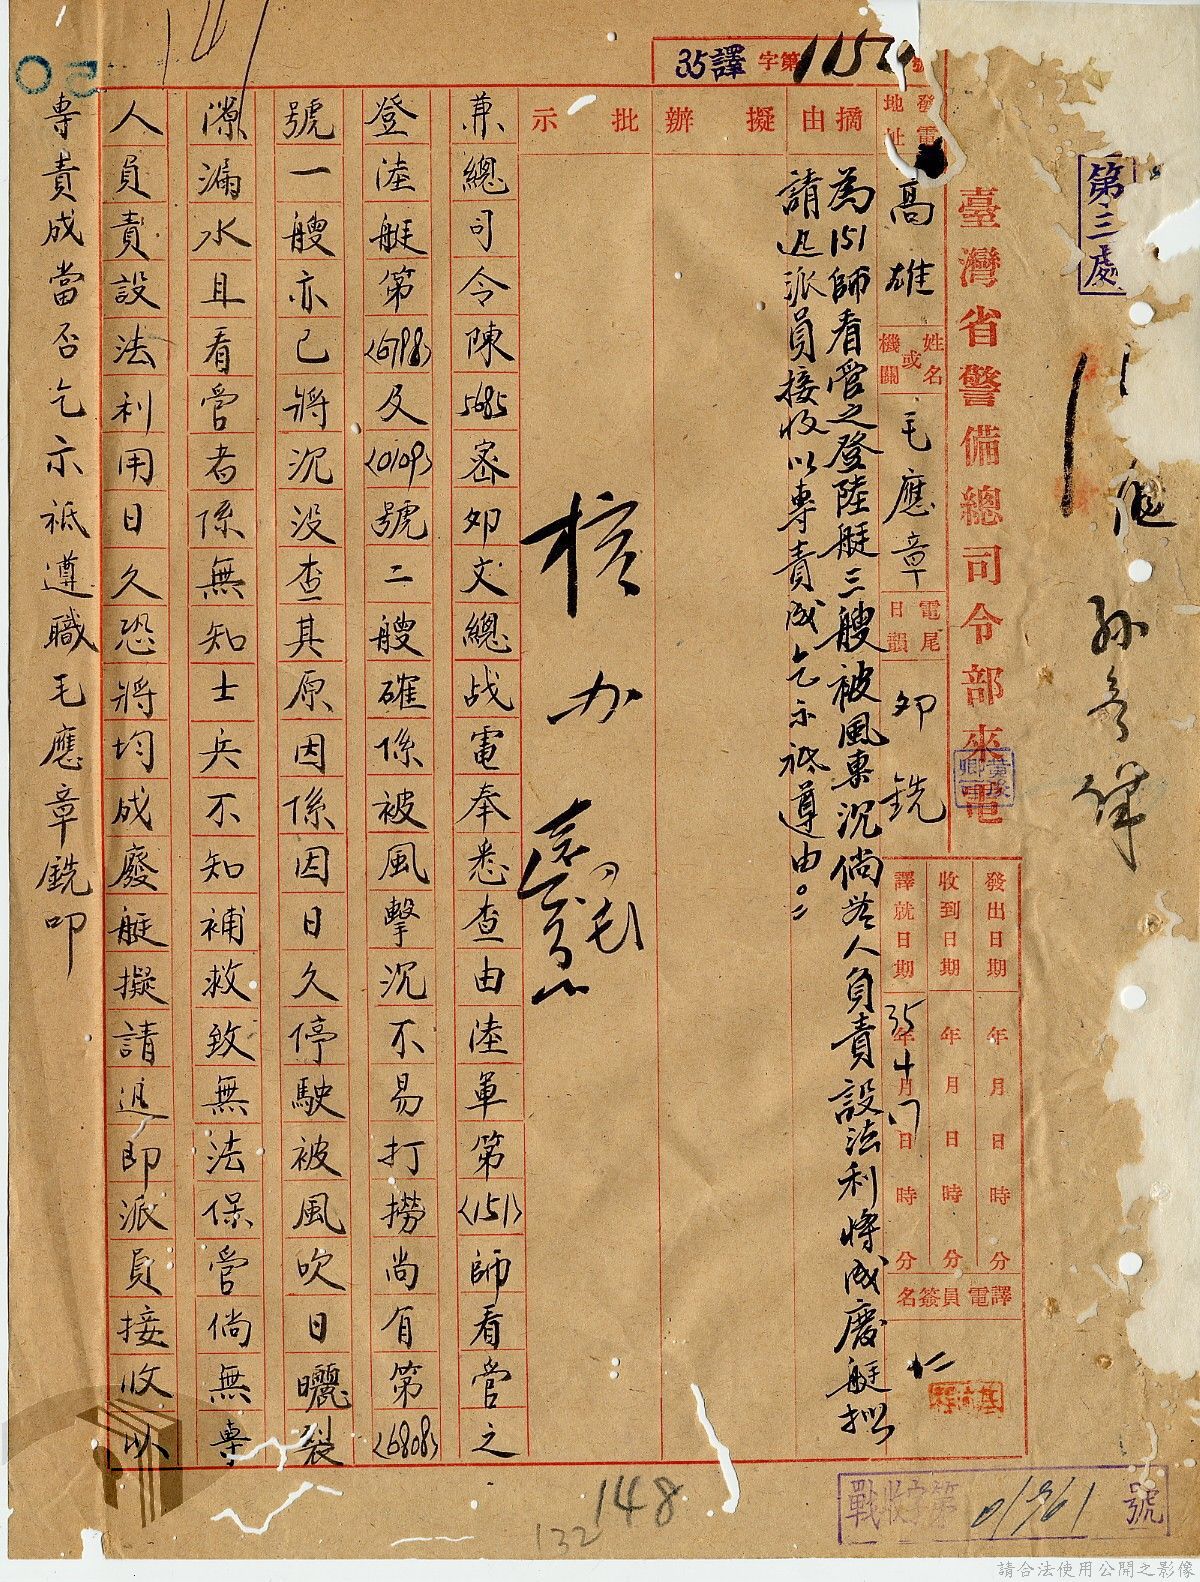 35譯字第115號
第三處
臺灣省警備總司令部來電
發電地址 高雄
姓名或機關 毛應章
電尾日韻 卯 銑
發出日期 年 月 日 時 分
收到日期 年 月 日 時 分
譯就日期 35年 月 日 時 分
譯電員簽名 仁
摘由
為151師看管之登陸艇三艘被風東沉倘若人負責設法利將成廢艇擬
請迅派員接收以專責成乞示祗遵由。
擬辦
批示
核办
兼總司令陳5685密卯文總战電奉悉查由陸軍第<151>師看管之
登陸艇第<6798>及<0109>號二艘確係被風擊沉不易打撈尚有第<6808>
號一艘亦已將沉没查其原因係因日久停駛被風吹日曬裂
漏水且看管者係無知士兵不知補救致無法保管倘無專
人員責設法利用日久恐將均成廢艇擬請迅即派員接收以
專責成當否乞示祗遵職毛應章銑叩
戰收字第01961號
148
132
請合法使用公開之影像